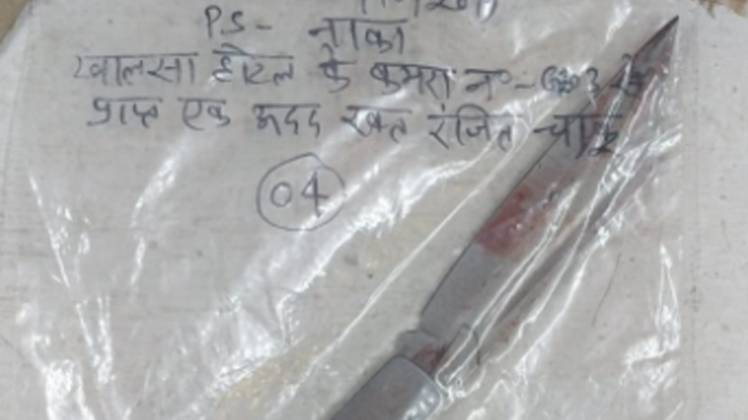 P.S- नाका
खालसा होटल के कमरा नं०-
प्राप्त एक अदद रक्त रंजित चाकू
04